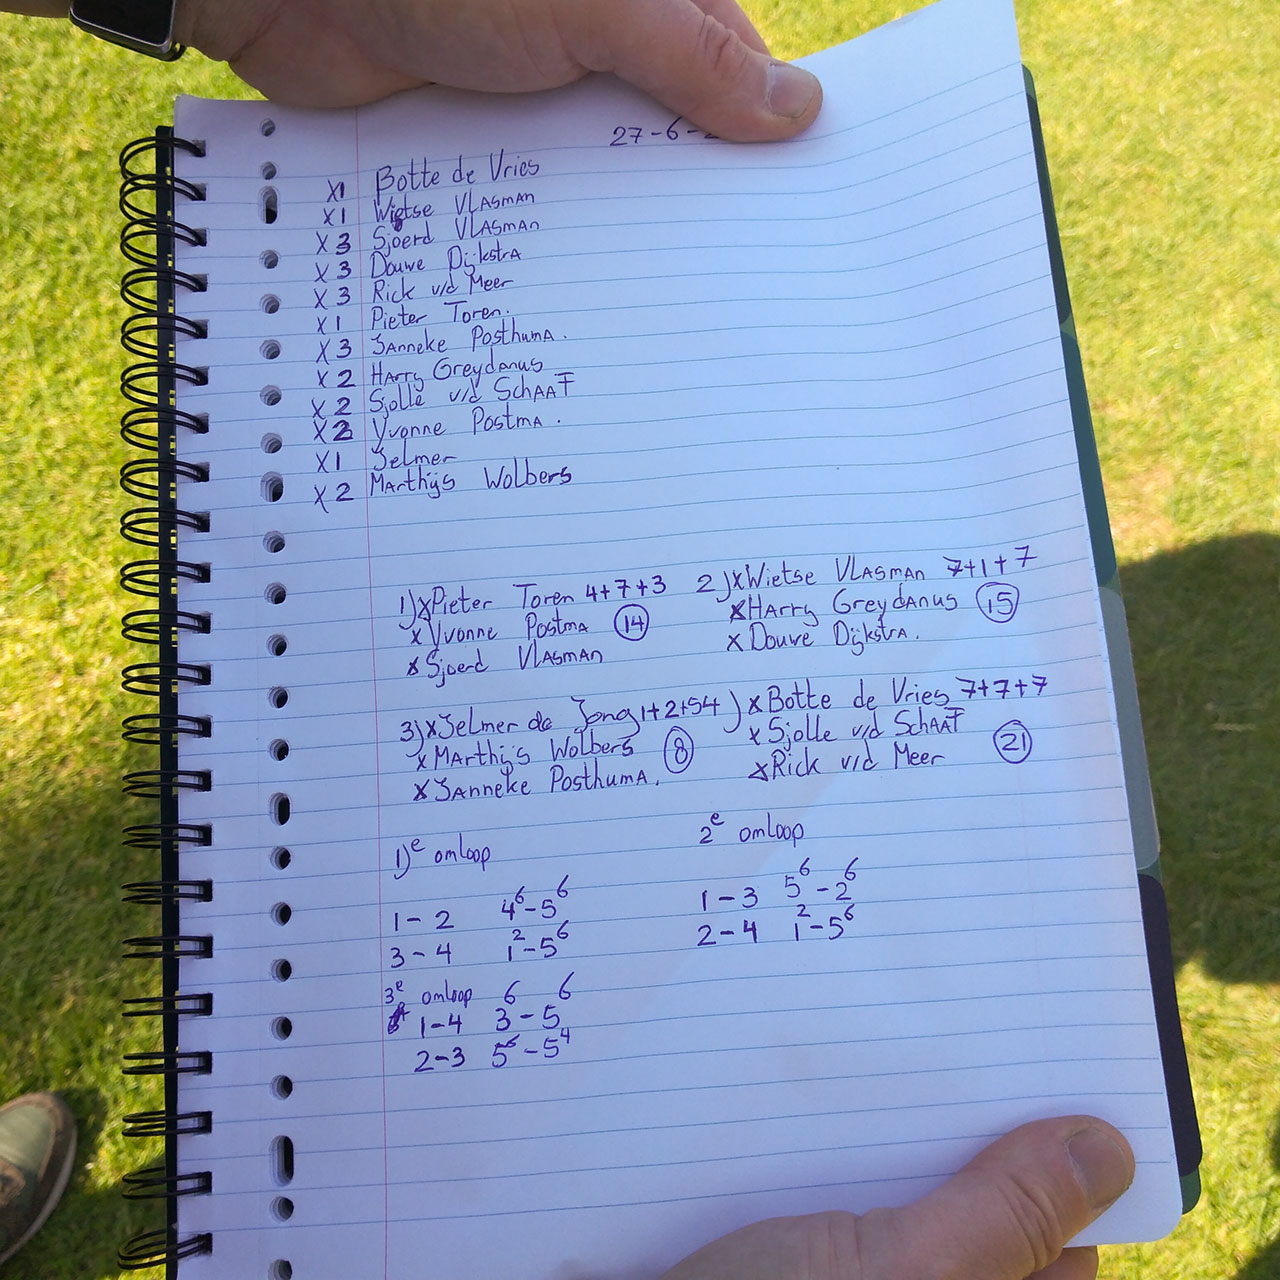 27-6-2
X1 Botte de Vries
X1 Wietse Vlasman
X3 Sjoerd Vlasman
X3 Douwe Dijkstra
X3 Rick v/d Meer
X1 Pieter Toren.
X3 Janneke Posthuma.
X2 Harry Greydanus
X2 Sjolle v/d Schaaf
X2 Yvonne Postma.
X1 Jelmer
X2 Marthijs Wolbers
1) x Pieter Toren 4+7+3
x Yvonne Postma 14
x Sjoerd Vlasman
2) x Wietse Vlasman 7+1+7
x Harry Greydanus 15
x Douwe Dijkstra.
3) x Jelmer de Jong 1+2+5
x Marthijs Wolbers 8
x Janneke Posthuma.
4) x Botte de Vries 7+7+7
x Sjolle v/d Schaaf
x Rick v/d Meer 21
1e omloop
1-2 4⁶-5⁶
3-4 1²-5⁶
2e omloop
1-3 5⁶-2⁶
2-4 1²-5⁶
3e omloop 6 6
1-4 3-5
2-3 5⁶-5⁴